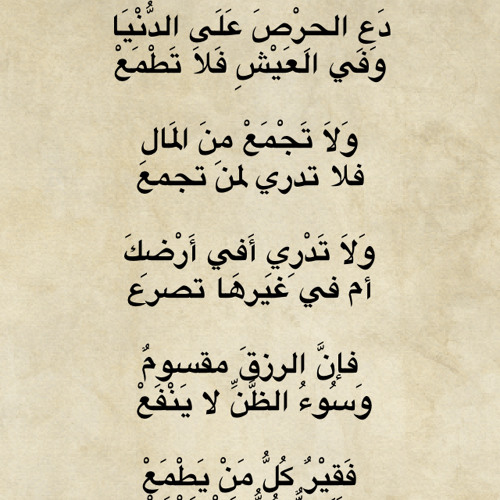 دَعِ الحرْصَ عَلَى الدُّنْيَا
وَفَي العَيْشِ فَلاَ تَطْمَعْ
وَلاَ تَجْمَعْ منَ المَالِ
فلا تدري لمنَ تجمعَ
وَلاَ تَدْرِي أَفي أَرْضكَ
أم في غَيَرهَا تصرعَ
فإنَّ الرزقَ مقسومٌ
وَسوءُ الظَّنِّ لا يَنْفَعْ
فَقِيْرٌ كُلُّ مَنْ يَطْمَعْ